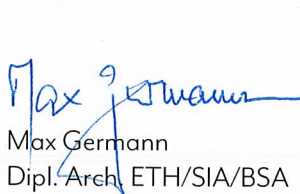 Max Germann
Max Germann
Dipl. Arch. ETH/SIA/BSA